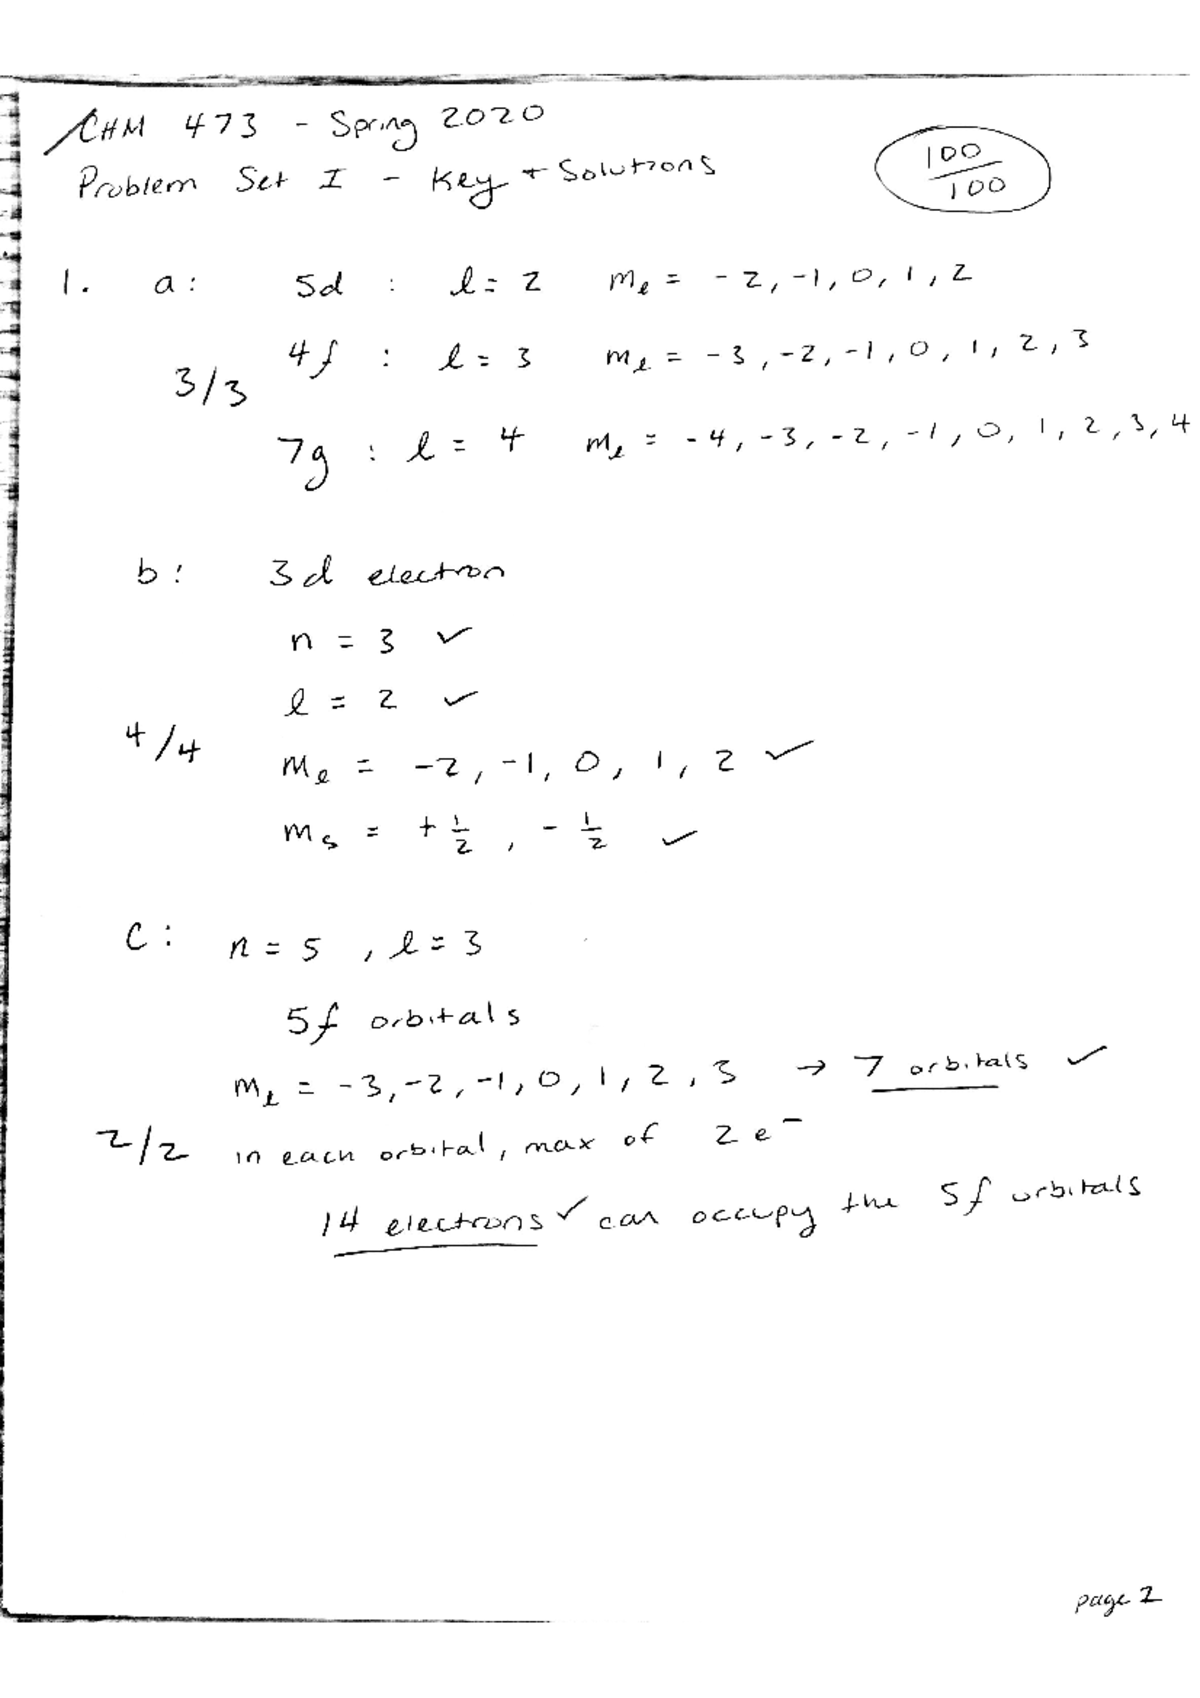 CHM 473 - Spring 2020
Problem Set I - Key + Solutions
100/100
1. a: 5d : l = 2 mₗ = -2, -1, 0, 1, 2
4f : l = 3 mₗ = -3, -2, -1, 0, 1, 2, 3
3/3
7g : l = 4 mₗ = -4, -3, -2, -1, 0, 1, 2, 3, 4
b: 3d electron
n = 3 ✓
l = 2 ✓
4/4
mₗ = -2, -1, 0, 1, 2 ✓
mₛ = +1/2, -1/2 ✓
C: n = 5, l = 3
5f orbitals
mₗ = -3, -2, -1, 0, 1, 2, 3 → 7 orbitals ✓
2/2 in each orbital, max of 2 e⁻
14 electrons ✓ can occupy the 5f orbitals
page 2